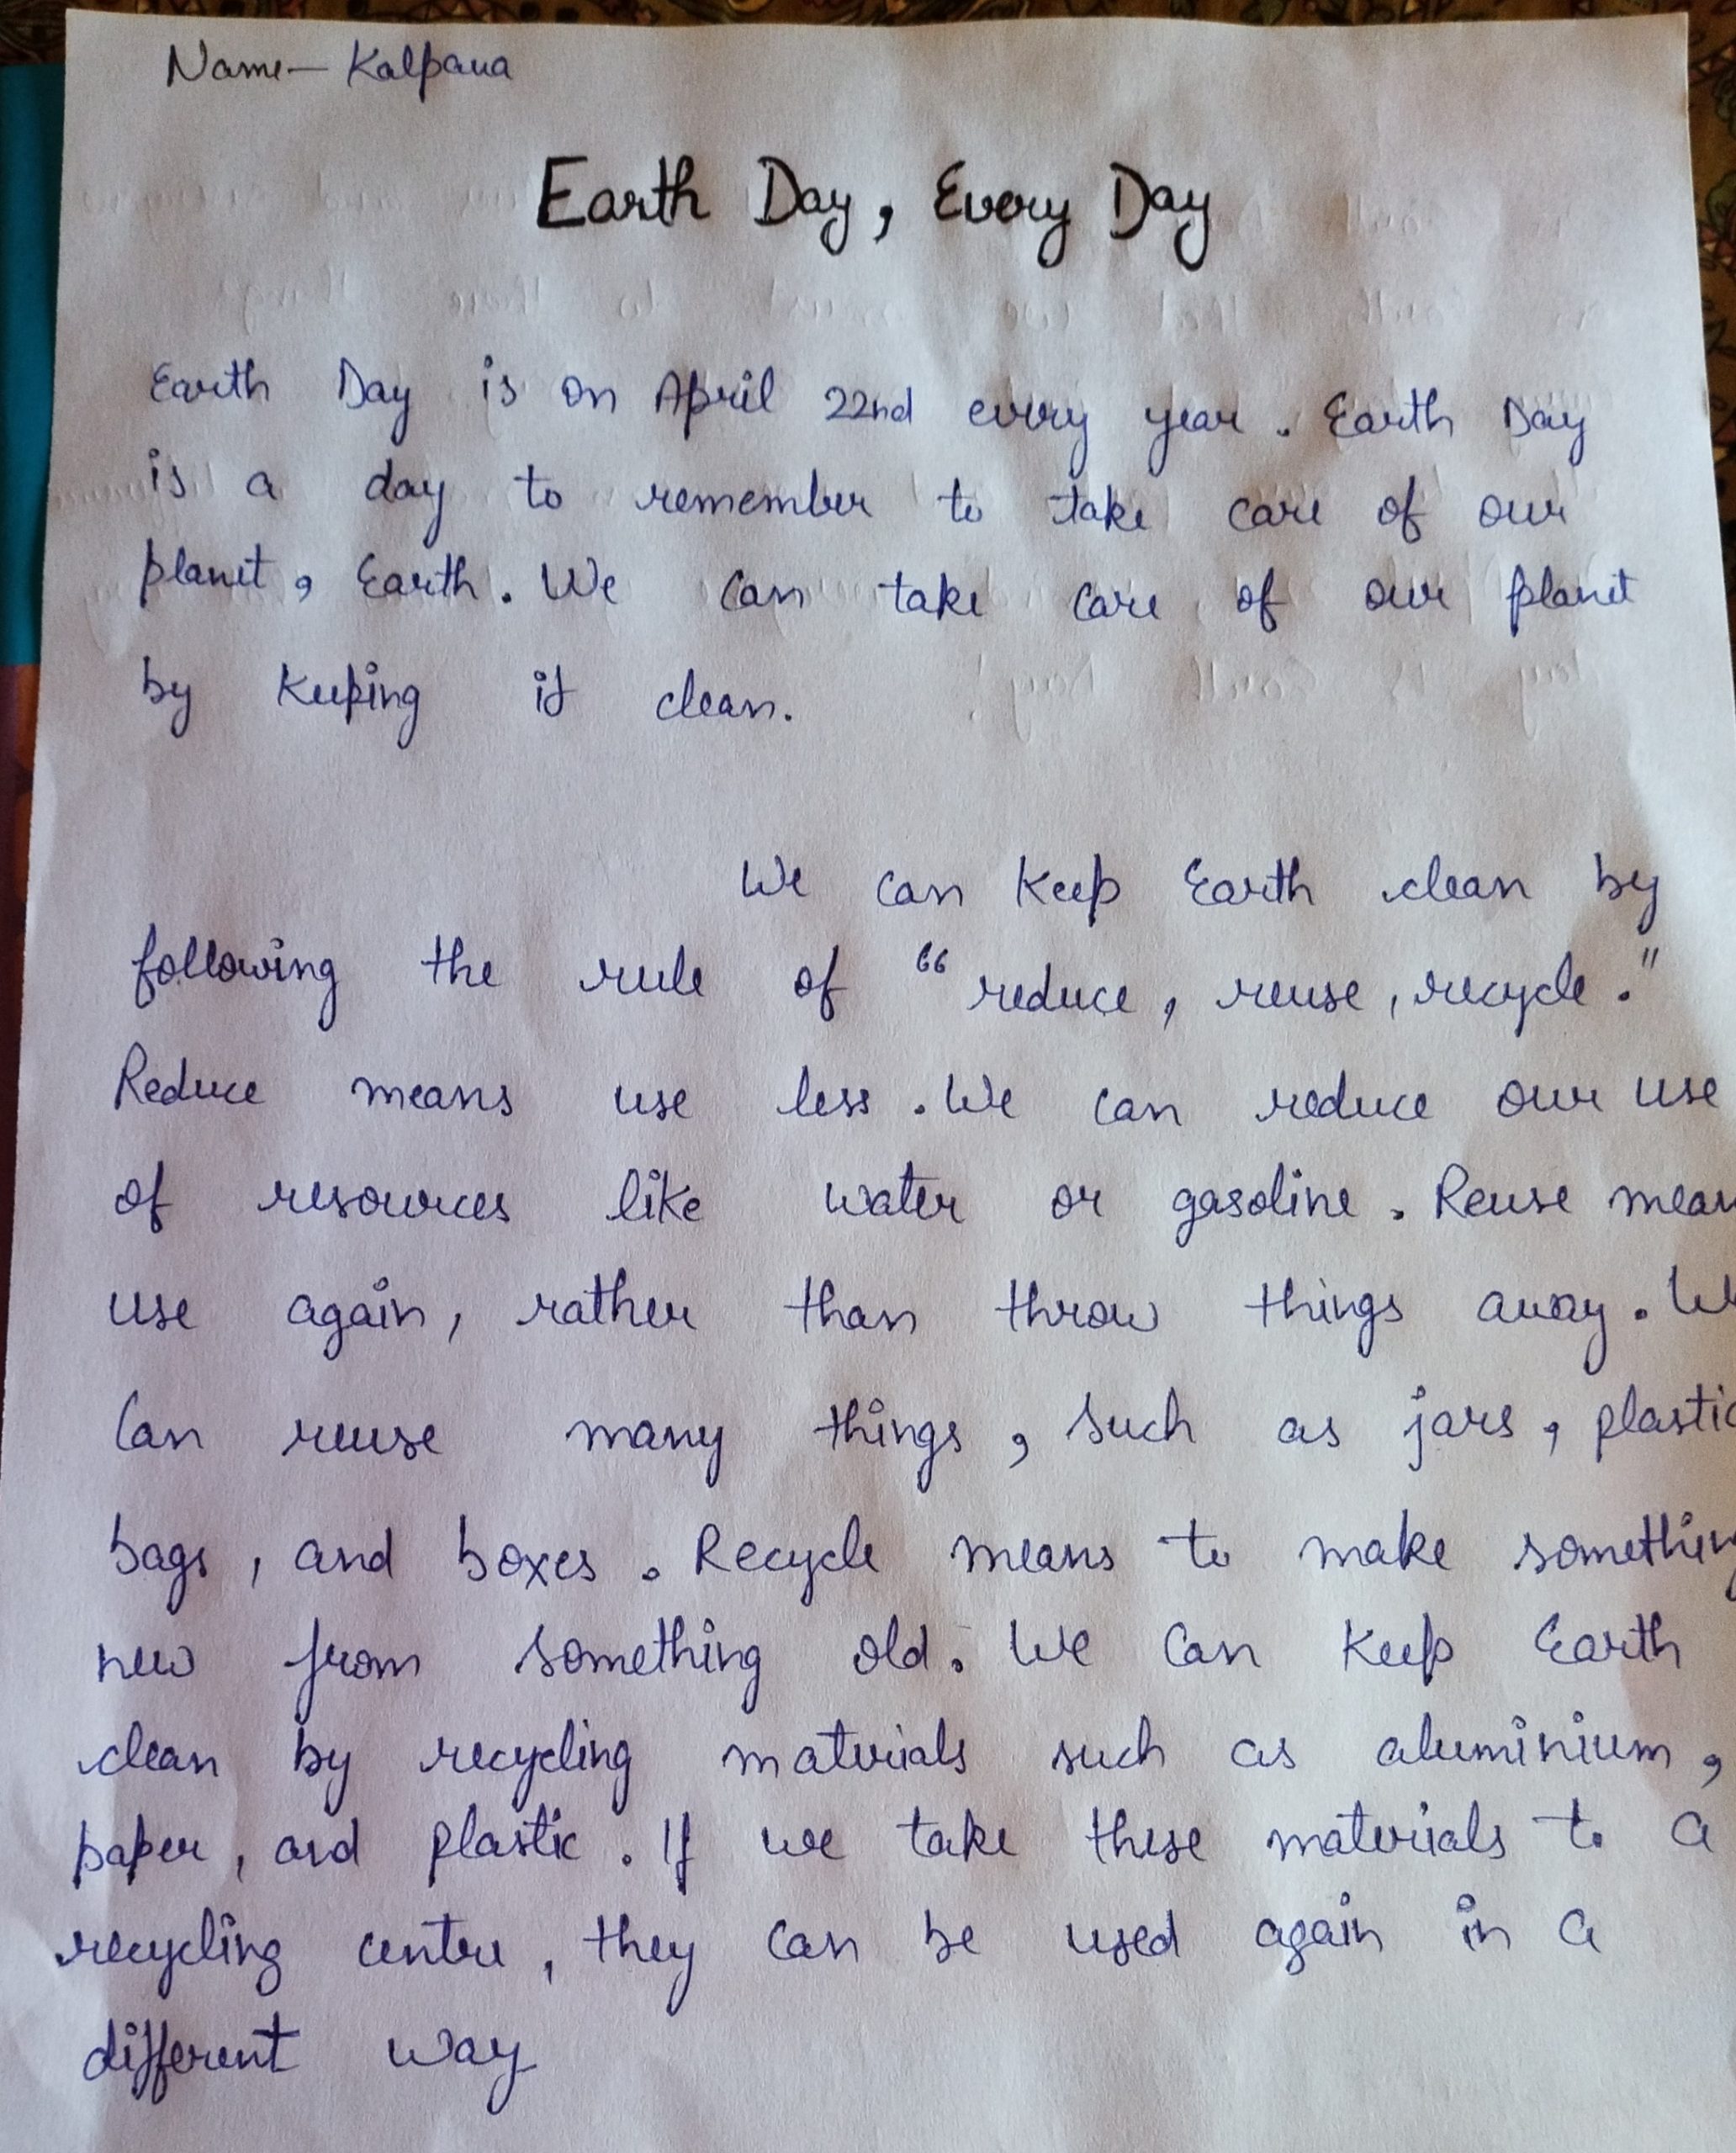 Name- Kalpana
Earth Day, Every Day
Earth Day is on April 22nd every year. Earth Day
is a day to remember to take care of our
planet, Earth. We can take care of our planet
by keeping it clean.
We can keep Earth clean by
following the rule of "reduce, reuse, recycle."
Reduce means use less. We can reduce our use
of resources like water or gasoline. Reuse mean
use again, rather than throw things away. We
can reuse many things, such as jars, plastic
bags, and boxes. Recycle means to make something
new from something old. We can keep Earth
clean by recycling materials such as aluminium,
paper, and plastic. If we take these materials to a
recycling centre, they can be used again in a
different way